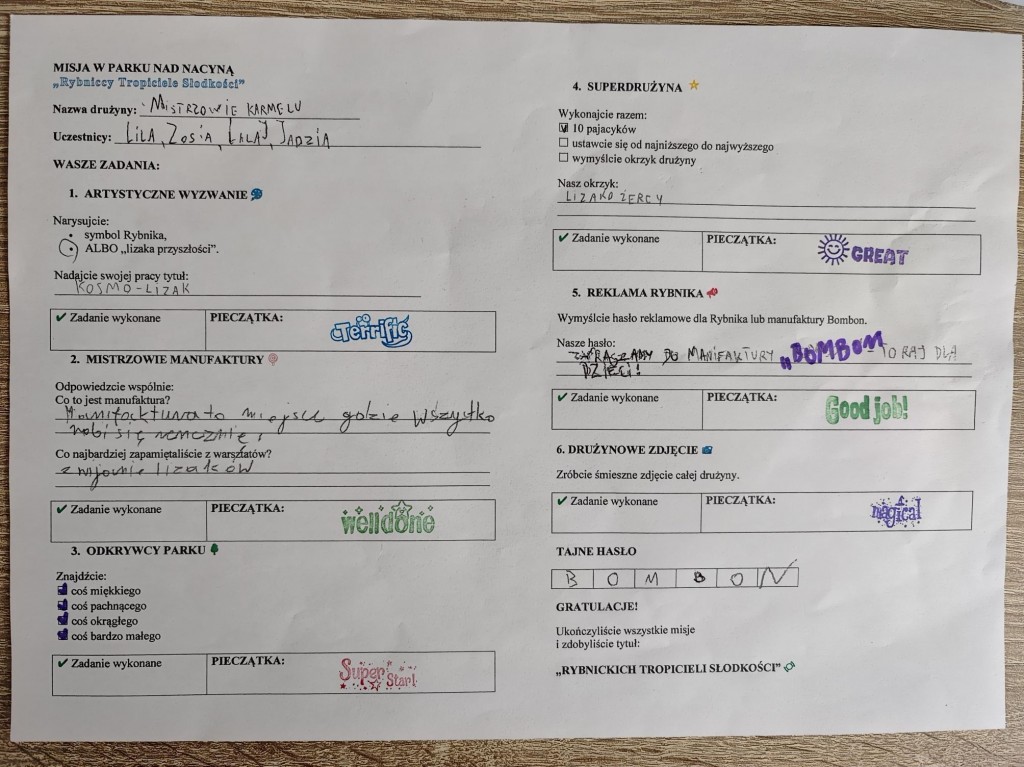 MISJA W PARKU NAD NACYNĄ
„Rybniccy Tropiciele Słodkości”
Nazwa drużyny: MISTRZOWIE KARMELU
Uczestnicy: LILA, ZOSIA, LALA, JADZIA
WASZE ZADANIA:
1. ARTYSTYCZNE WYZWANIE
Narysujcie:
symbol Rybnika,
ALBO „lizaka przyszłości”.
Nadajcie swojej pracy tytuł:
KOSMO-LIZAK
✔ Zadanie wykonane PIECZĄTKA: Terrific
2. MISTRZOWIE MANUFAKTURY
Odpowiedzcie wspólnie:
Co to jest manufaktura?
Manifaktura to miejsce gdzie wszystko
robi się ręcznie
Co najbardziej zapamiętaliście z warsztatów?
zwijanie lizaków
✔ Zadanie wykonane PIECZĄTKA: well done
3. ODKRYWCY PARKU
Znajdźcie:
coś miękkiego
coś pachnącego
coś okrągłego
coś bardzo małego
✔ Zadanie wykonane PIECZĄTKA: Super Star!
4. SUPERDRUŻYNA
Wykonajcie razem:
10 pajacyków
ustawcie się od najniższego do najwyższego
wymyślcie okrzyk drużyny
Nasz okrzyk:
LIZAKOŻERCY
✔ Zadanie wykonane PIECZĄTKA: GREAT
5. REKLAMA RYBNIKA
Wymyślcie hasło reklamowe dla Rybnika lub manufaktury Bombon.
Nasze hasło:
ZAPRASZAMY DO MANIFAKTURY „BOMBOM - TO RAJ DLA
DZIECI!
✔ Zadanie wykonane PIECZĄTKA: Good job!
6. DRUŻYNOWE ZDJĘCIE
Zróbcie śmieszne zdjęcie całej drużyny.
✔ Zadanie wykonane PIECZĄTKA: magical
TAJNE HASŁO
B O M B O N
GRATULACJE!
Ukończyliście wszystkie misje
i zdobyliście tytuł:
„RYBNICKICH TROPICIELI SŁODKOŚCI”